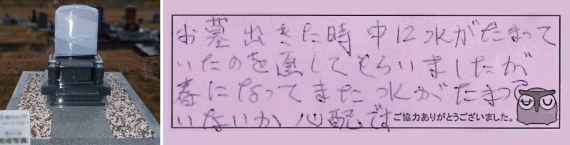 お墓出きた時中に水がたまって
いたのを直してもらいましたが
春になってまた水がたまって
いないか心配です
ご協力ありがとうございました。